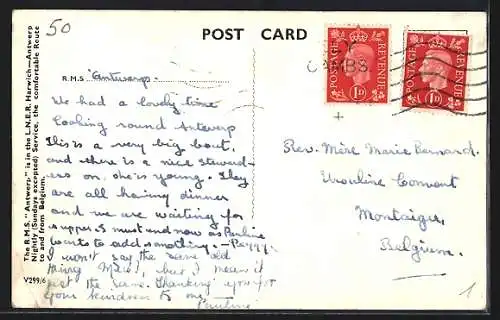 50
POST CARD
R.M.S. Antwerp.
We had a lovely time
looking round Antwerp
This is a very big boat,
and there is a nice steward-
ess on, she is young. They
are all having dinner
and we are waiting for
supper. I must end now as Pauline
wants to add something. - Peggy.
I won't say the same old
thing Mary, but I mean it
just the same. Thanking you for
your kindness to me —
Pauline
The R.M.S. "Antwerp" is in the L.N.E.R. Harwich—Antwerp
Nightly (Sundays excepted) Service, the comfortable Route
to and from Belgium.
V299/6
POSTAGE REVENUE
1D
POSTAGE REVENUE
1D
CAMBS
Rev. Mère Marie Bernard.
Ursuline Convent
Montaigu,
Belgium.
1